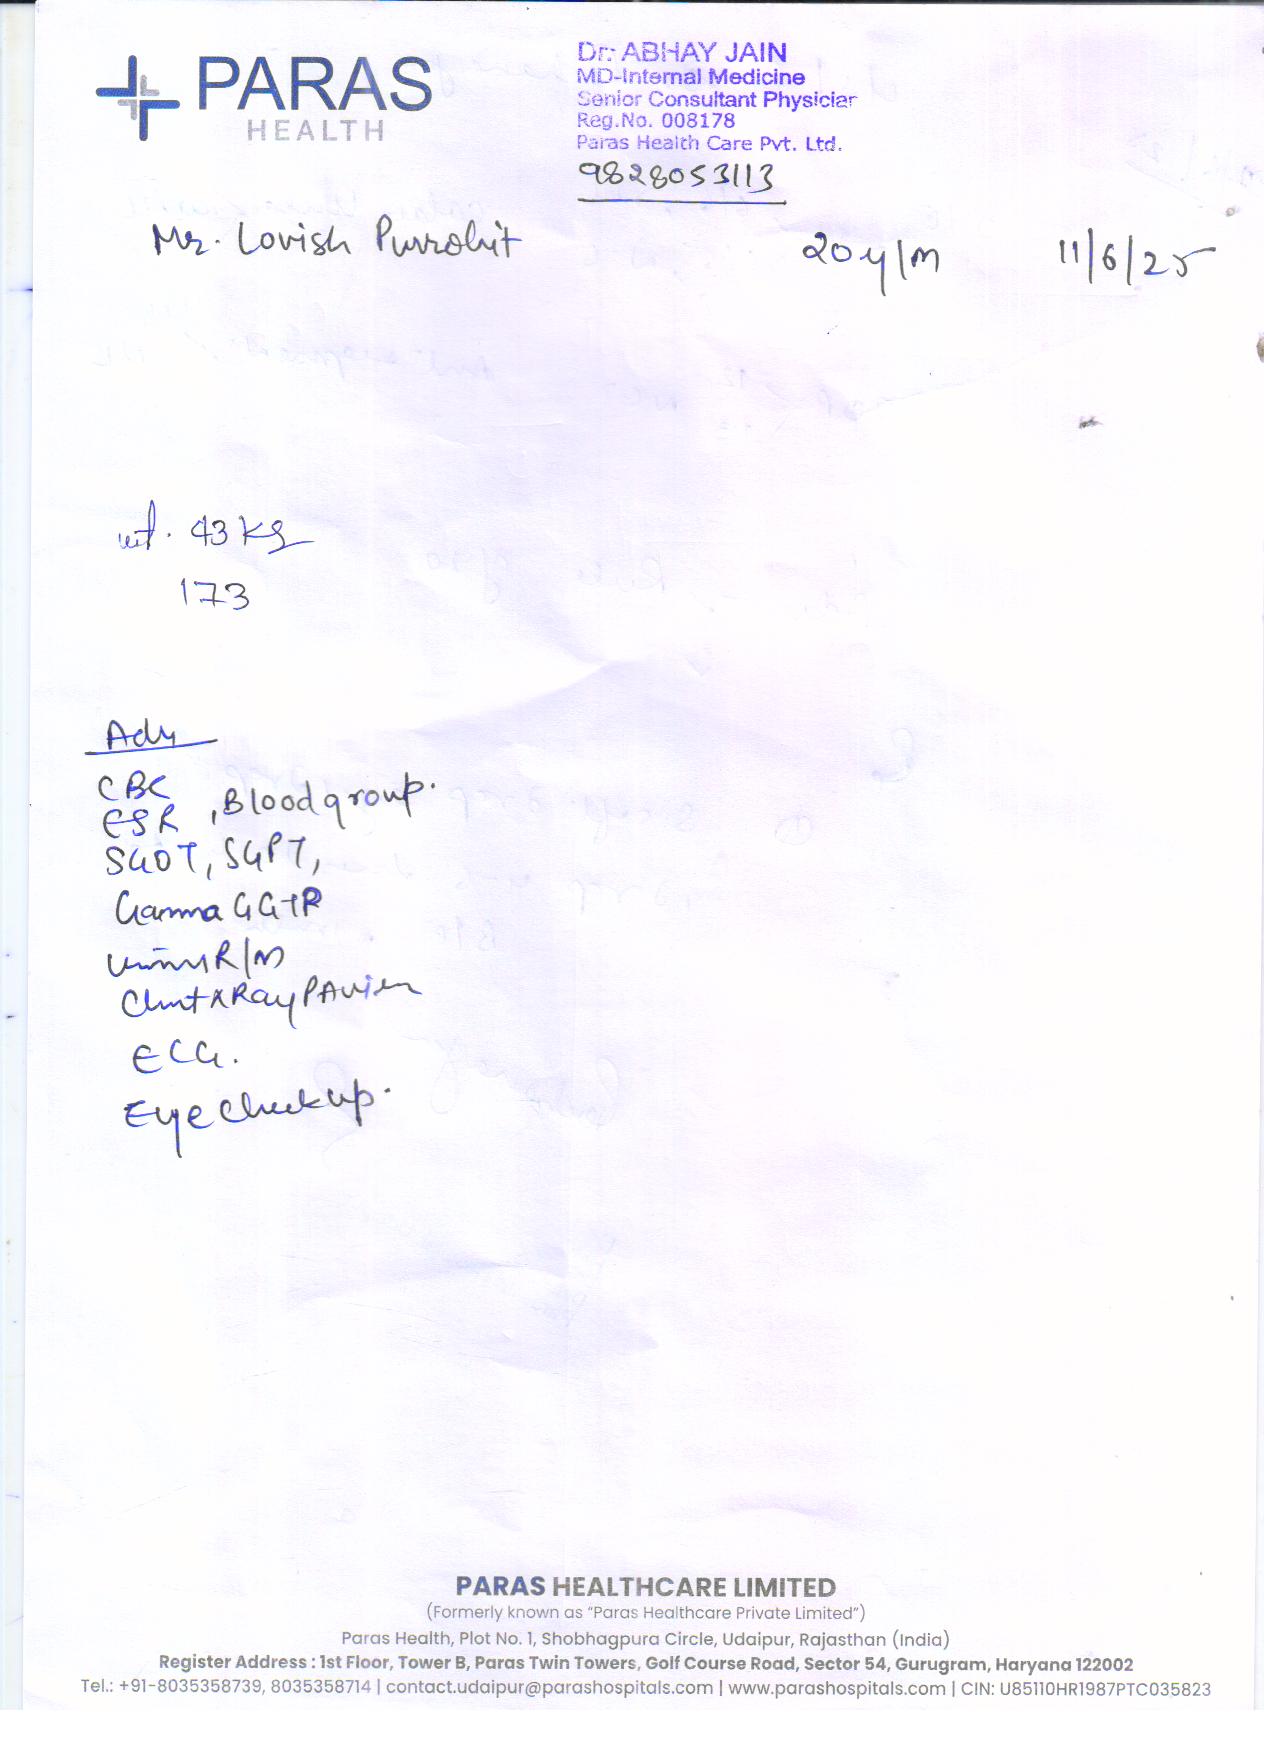 PARAS
HEALTH
Dr. ABHAY JAIN
MD-Internal Medicine
Senior Consultant Physician
Reg.No. 008178
Paras Health Care Pvt. Ltd.
9828053113
Mr. Lovish Purrohit 20y/M 11/6/25
wt. 43 Kg
173
Adv
CBC
ESR, Blood group.
SGOT, SGPT,
Gamma GGTP
Urine R/M
Chest X Ray PA view
ECG.
Eye Check up.
PARAS HEALTHCARE LIMITED
(Formerly known as “Paras Healthcare Private Limited”)
Paras Health, Plot No. 1, Shobhagpura Circle, Udaipur, Rajasthan (India)
Register Address : 1st Floor, Tower B, Paras Twin Towers, Golf Course Road, Sector 54, Gurugram, Haryana 122002
Tel.: +91-8035358739, 8035358714 | contact.udaipur@parashospitals.com | www.parashospitals.com | CIN: U85110HR1987PTC035823